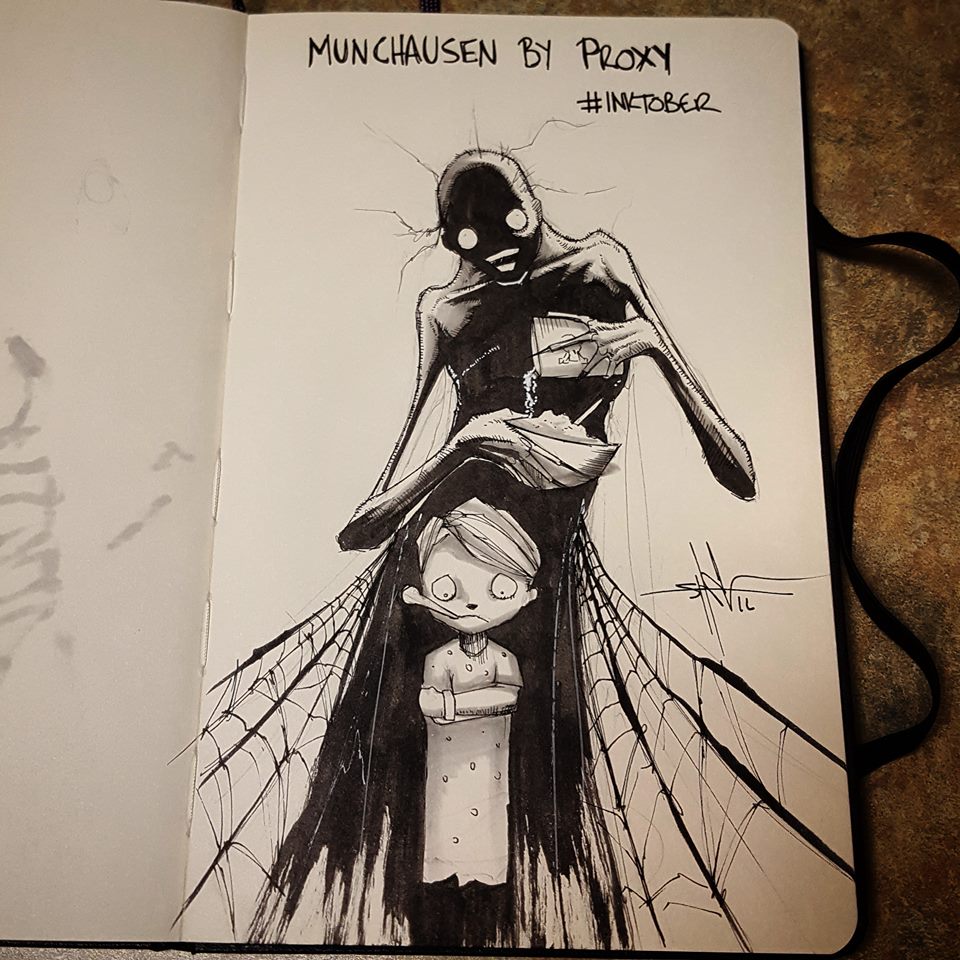 MUNCHAUSEN BY PROXY
#INKTOBER